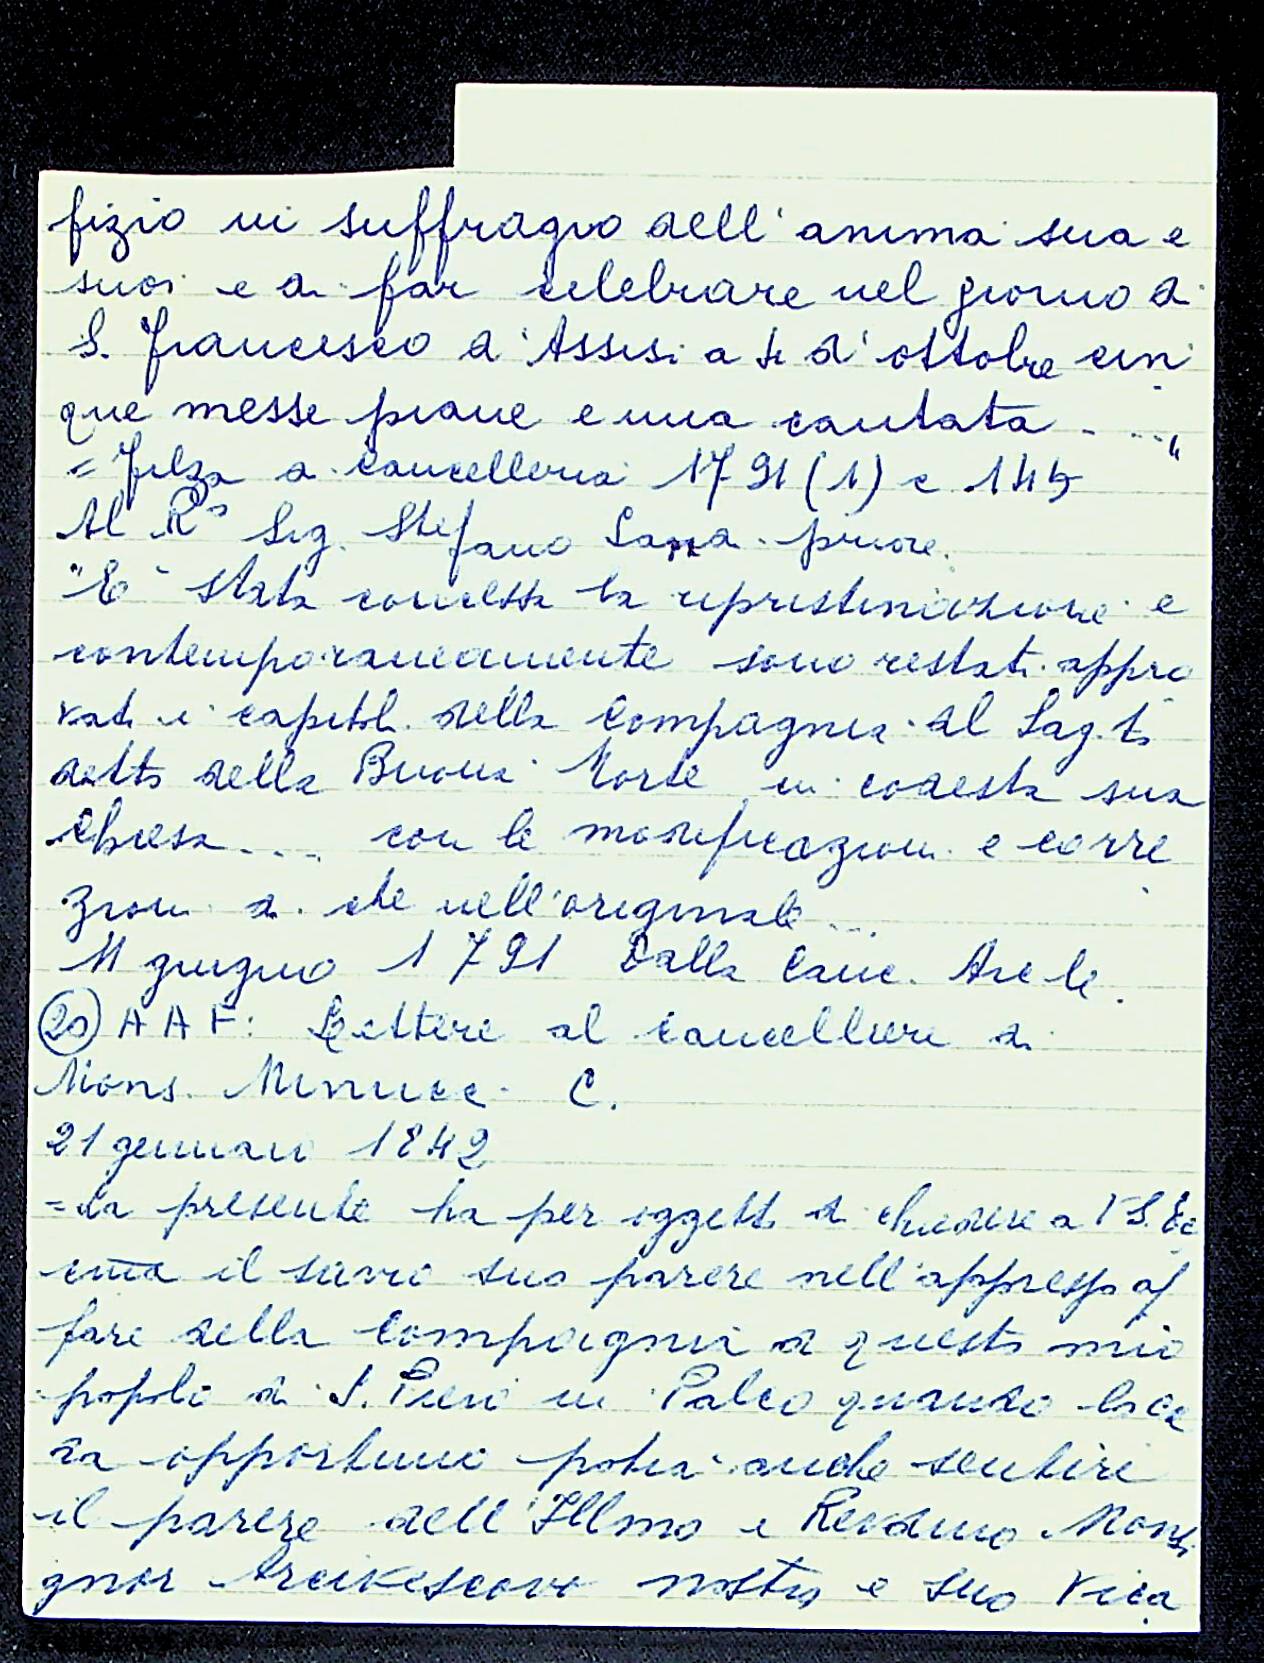 fizio in suffragio dell'anima sua e
suoi e di far celebrare nel giorno di
S. Francesco d'Assisi a 4 d'ottobre cin
que messe piane e una cantata . . . . "
= Filza di cancelleria 1791 (1) c 145
Al R° Sig. Stefano priore.
"E' stata concessa la ripristinazione e
contemporaneamente sono restati appro
vati i capitoli della Compagnia del Sag.to
detto della Buona Morte in codesta sua
Chiesa . . . . con le modificazioni e corre
zioni di che nell'originale . . .
11 giugno 1791 Dalla Canc. Arc.le.
(20) A A F: Lettere al cancelliere di
Mons. Minucci C.
21 gennaio 1842
= La presente ha per oggetto di chiedere a V S. Ec
cma il savio suo parere nell'appresso af
fare della Compagnia di questo mio
popolo di S. Piero in Palco quando lo cre
da opportuno potrà anche sentire
il parere dell'Illmo e Revdmo Monsi
gnor Arcivescovo nostro e suo Vica